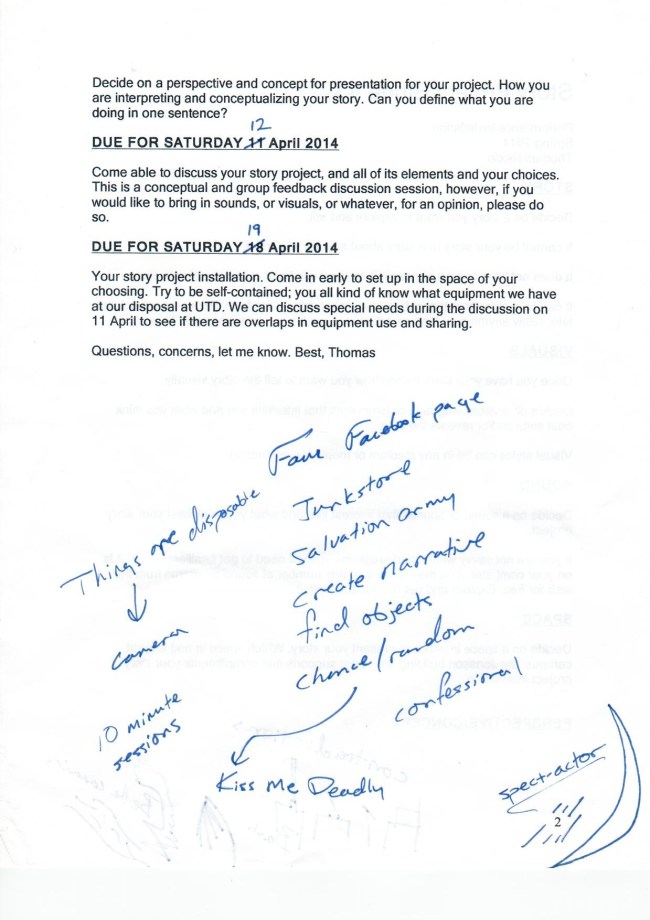 Decide on a perspective and concept for presentation for your project. How you
are interpreting and conceptualizing your story. Can you define what you are
doing in one sentence?
12
DUE FOR SATURDAY 11 April 2014
Come able to discuss your story project, and all of its elements and your choices.
This is a conceptual and group feedback discussion session, however, if you
would like to bring in sounds, or visuals, or whatever, for an opinion, please do
so.
19
DUE FOR SATURDAY 18 April 2014
Your story project installation. Come in early to set up in the space of your
choosing. Try to be self-contained; you all kind of know what equipment we have
at our disposal at UTD. We can discuss special needs during the discussion on
11 April to see if there are overlaps in equipment use and sharing.
Questions, concerns, let me know. Best, Thomas
Facebook page
Junkstore
Things are disposable
Salvation army
create narrative
find objects
camera
chance/random
confessional
10 minute
sessions
Kiss Me Deadly
spect-actor
2